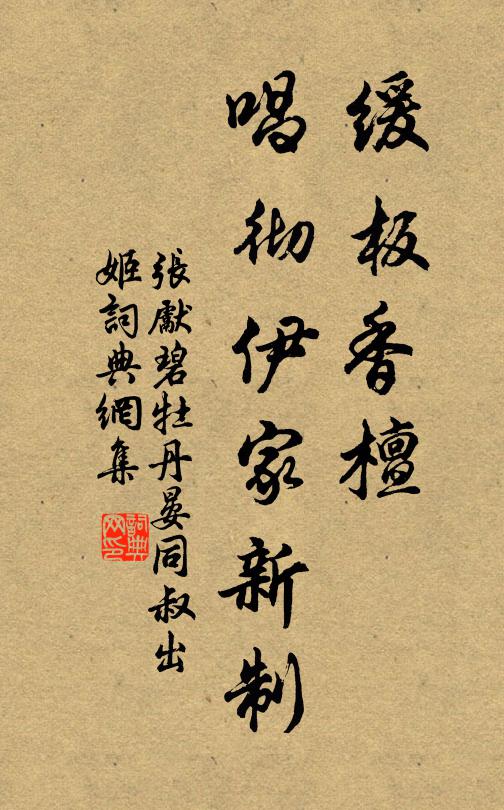 緩板香檀
唱彻伊家新制
張獻碧牡丹晏同叔出
姬詞典網集
詞典
网印